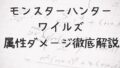 モンスターハンター
ワイルズ
属性ダメージ徹底解説